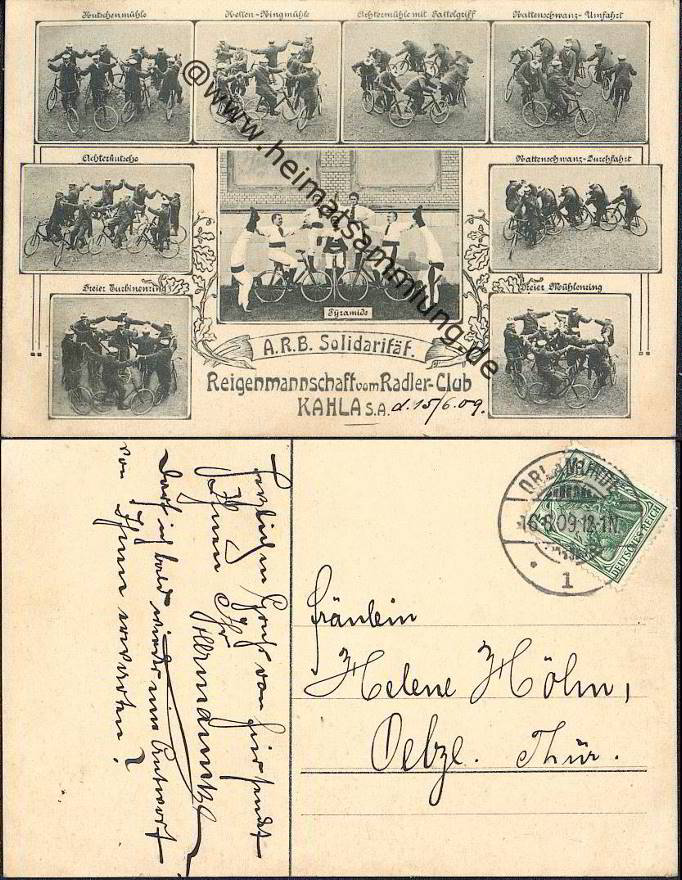 Kutschenmühle
Ketten-Ringmühle
Achtermühle mit Sattelgriff
Rattenschwanz-Umfahrt
Achterkutsche
Rattenschwanz-Durchfahrt
Freier Turbinenring
Pyramide
Freier Mühlenring
@www.heimatsammlung.de
A.R.B. Solidarität.
Reigenmannschaft vom Radler-Club
KAHLA S.A. d. 15/6.09.
ORLAMÜNDE
16.6.09.12-1N.
1
DEUTSCHES REICH
Fräulein
Helene Höhn,
Oelze. Thür.
Herzlichen Gruß von hier sendet
Ihnen Ihr
Darf ich bald wieder eine Antwort
von Ihnen erwarten?